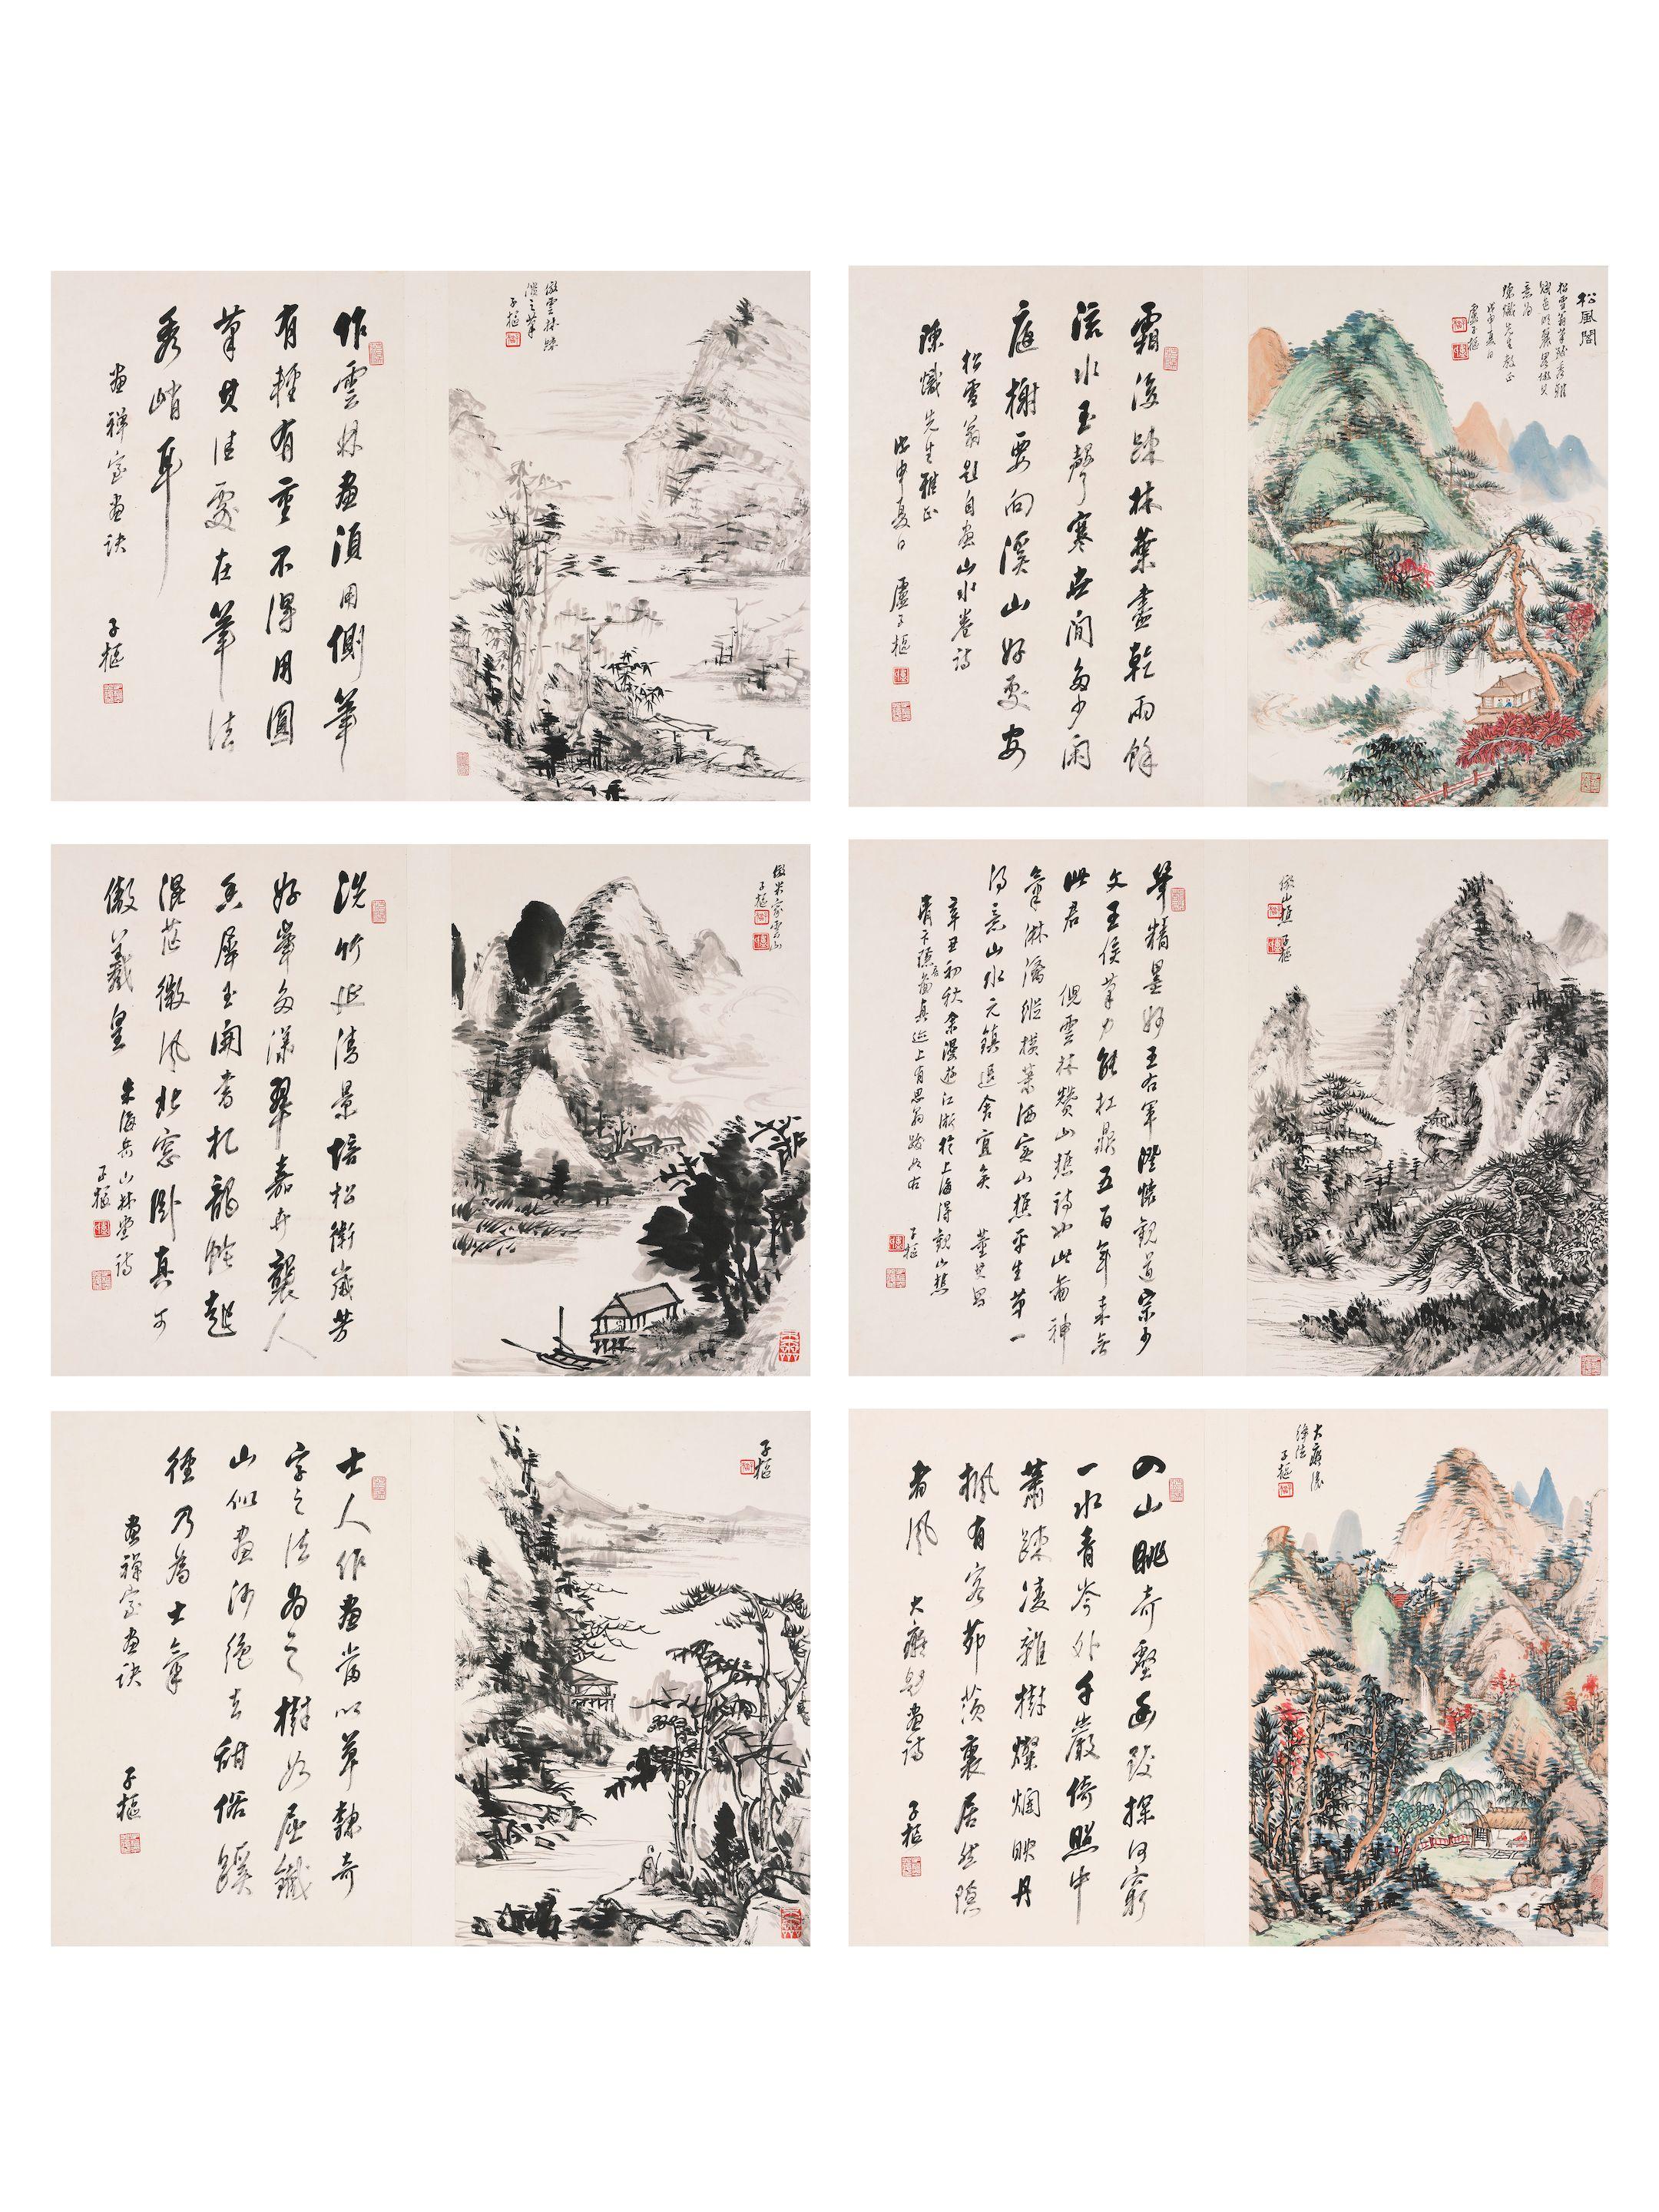 松風閣
松雪翁筆致秀雅
賦色明麗略倣其
意為
陳熾先生教正
戊申夏日
盧子樞
霜後疎林葉盡乾雨餘
流水玉聲寒世間多少閑
庭榭要向溪山好處安
松雪翁題自畫山水卷詩
陳熾先生雅正
戊申夏日 盧子樞
倣雲林疎
淡之筆
子樞
作雲林畫須用側筆
有輕有重不得用圓
筆其佳處在筆法
秀峭耳
畫禪室畫訣
子樞
倣山樵
子樞
筆精墨妙王右軍澄懷觀道宗少
文王侯筆力能扛鼎五百年來無
此君 倪雲林贊山樵詩也此圖神
氣淋漓縱橫蕭洒寔山樵平生第一
得意山水元鎮退舍宜矣 董其昌
辛丑初秋余漫遊江浙於上海得觀山樵
青卞隱居圖真迹上有思翁跋如右
子樞
倣米家雲山
子樞
洗竹延清景培松衛歲芳
好峯多漾翠嘉卉襲人
香犀玉開書札龍蛇起
混茫微風北窗臥真可
傲羲皇
米海岳山林堂詩
子樞
大癡淺
絳法
子樞
四山眺奇壑幽致探何窮
一水青岑外千巖倚照中
蕭疎凌雜樹燦爛映丹
楓有客茆茨裏居然隱
者風
大癡題畫詩
子樞
子樞
士人作畫當以草隸奇
字之法為之樹如屈鐵
山似畫沙絕去甜俗蹊
徑乃為士氣
畫禪室畫訣
子樞